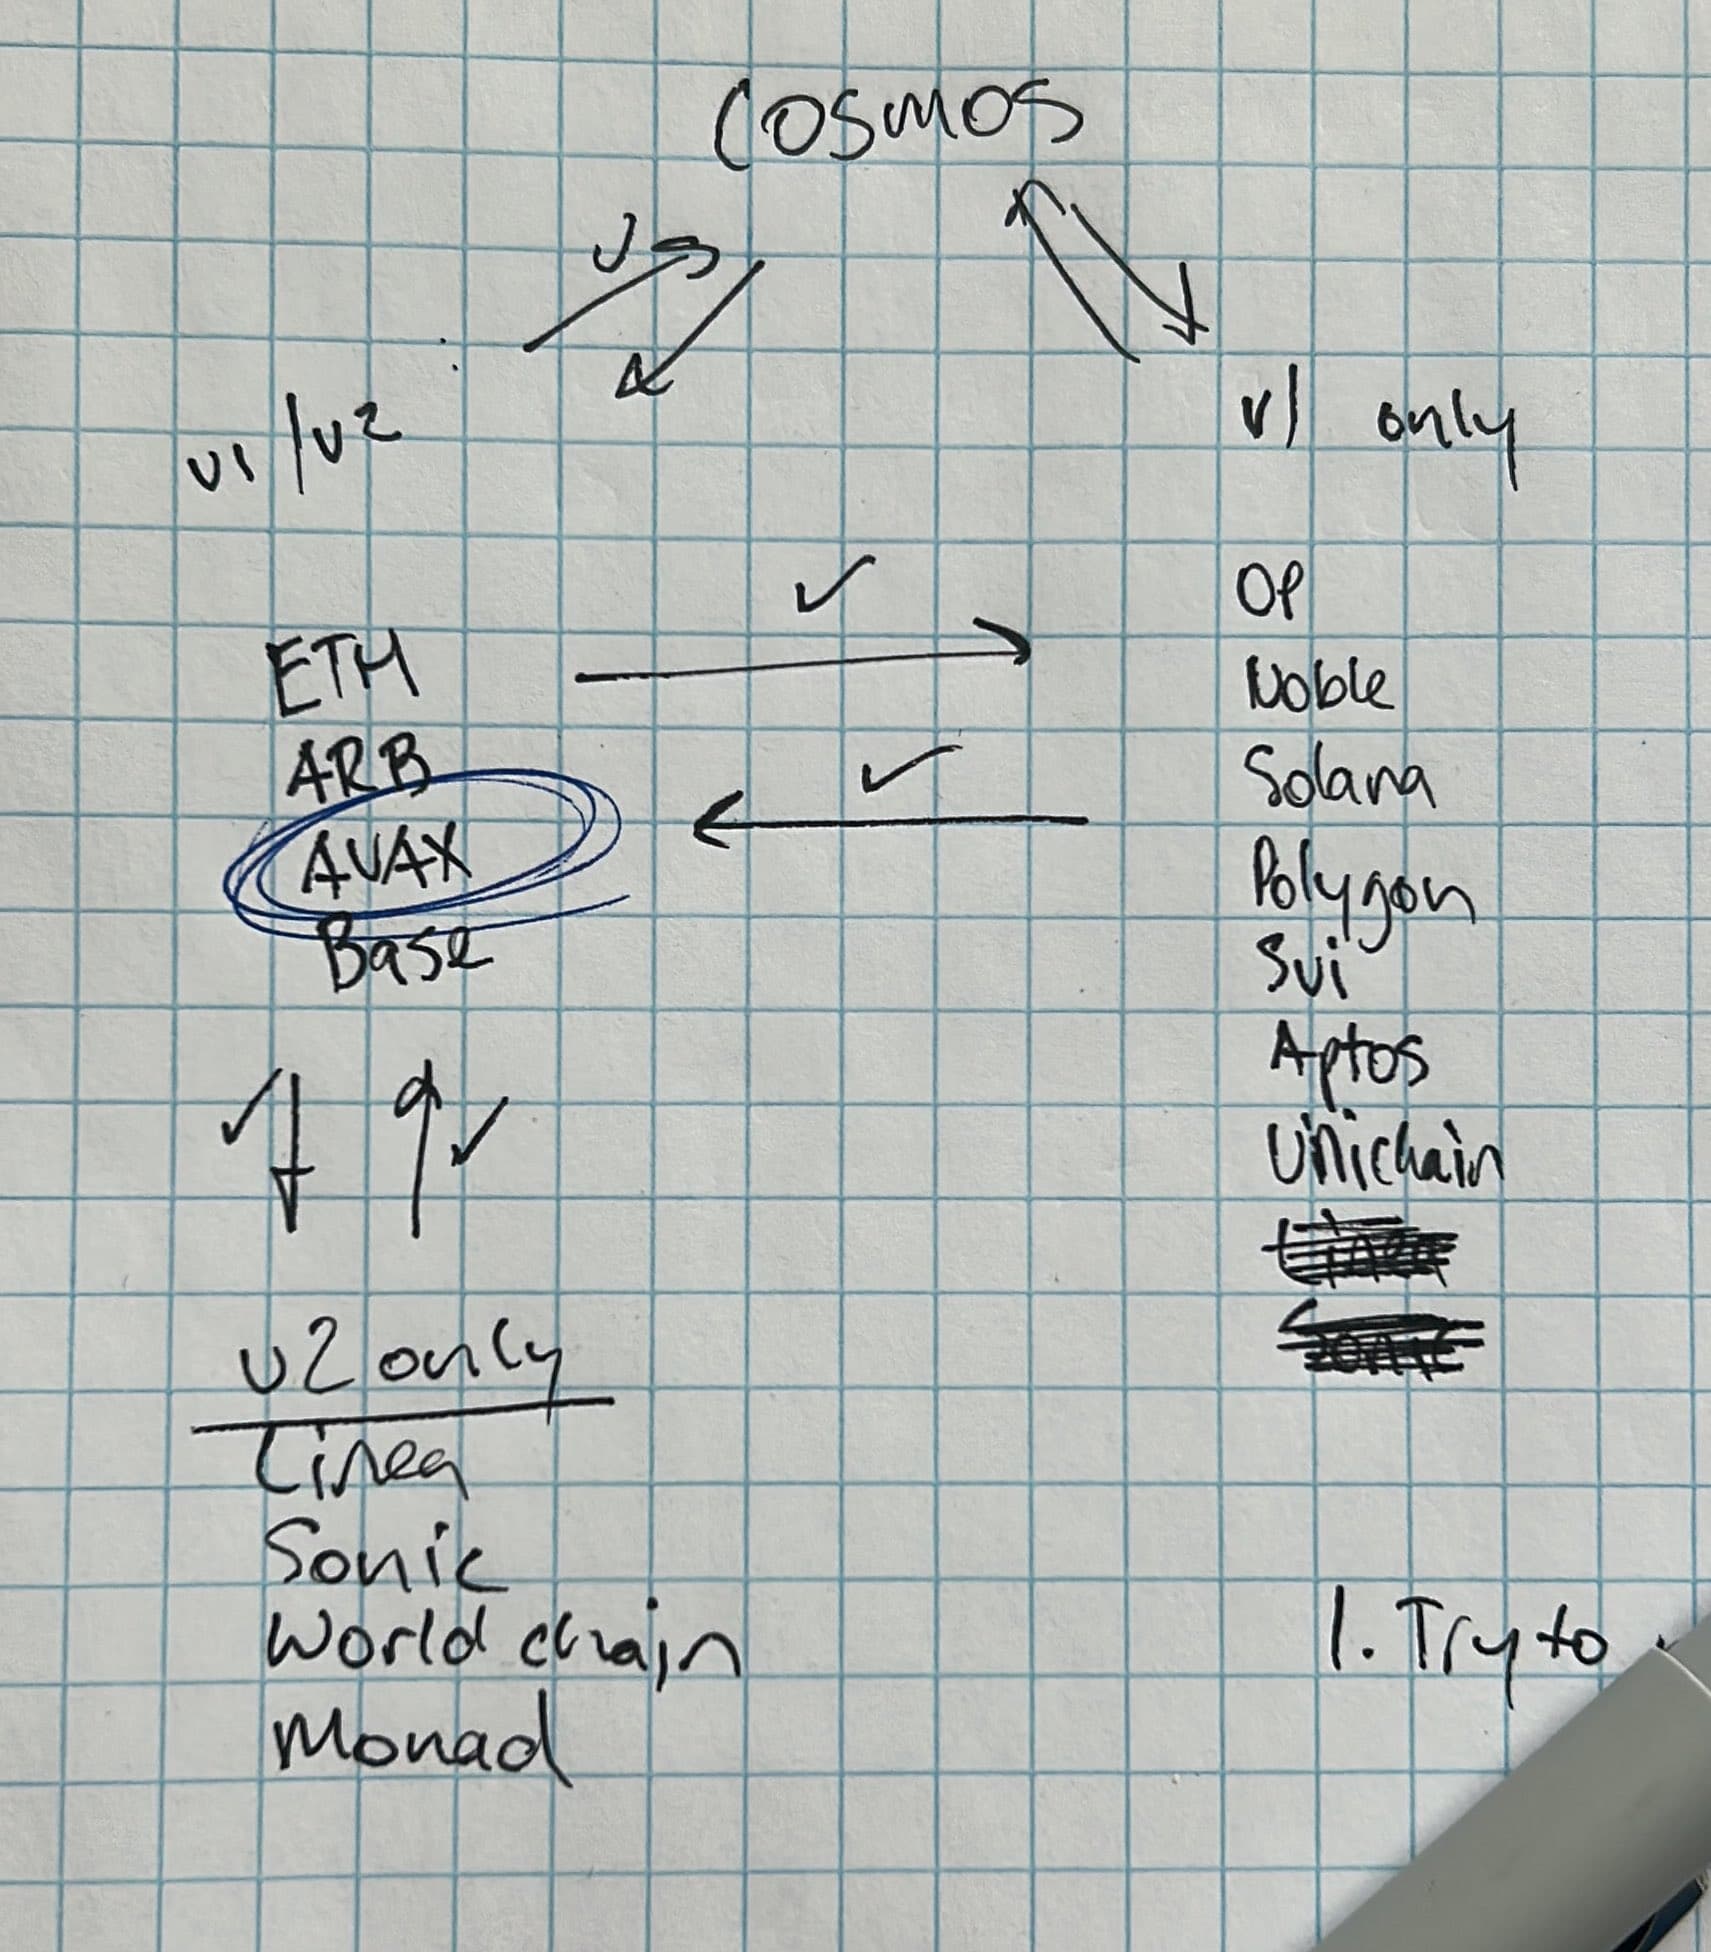 COSMOS
v1/v2
v1 only
OP
ETH
Noble
ARB
Solana
AVAX
Polygon
Base
Sui
Aptos
Unichain
Linea
Sonic
v2 only
Linea
Sonic
World chain
Monad
1. Try to